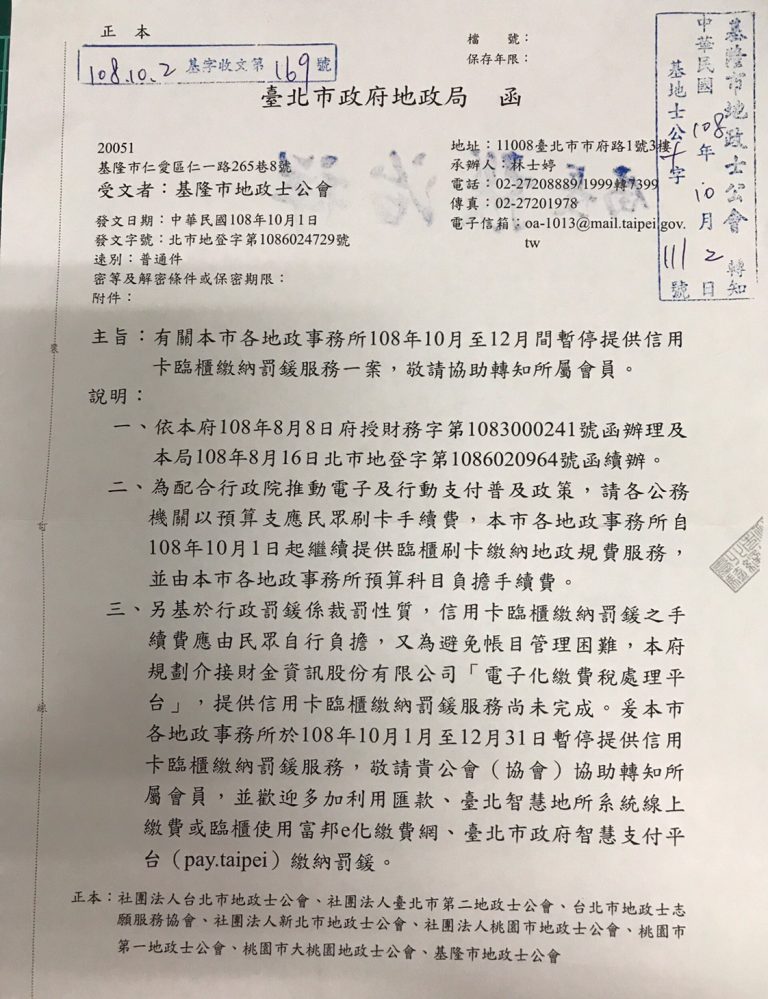 正 本
檔 號：
保存年限：
108.10.2 基字收文第 169 號
基隆市地政士公會 轉知
中華民國 108 年 10 月 2 日
基地士公 字 111 號
臺北市政府地政局 函
20051
基隆市仁愛區仁一路265巷8號
受文者：基隆市地政士公會
地址：11008臺北市市府路1號3樓
承辦人：林士婷
電話：02-27208889/1999轉7399
傳真：02-27201978
電子信箱：oa-1013@mail.taipei.gov.
tw
發文日期：中華民國108年10月1日
發文字號：北市地登字第1086024729號
速別：普通件
密等及解密條件或保密期限：
附件：
主旨：有關本市各地政事務所108年10月至12月間暫停提供信用
卡臨櫃繳納罰鍰服務一案，敬請協助轉知所屬會員。
說明：
一、依本府108年8月8日府授財務字第1083000241號函辦理及
本局108年8月16日北市地登字第1086020964號函續辦。
二、為配合行政院推動電子及行動支付普及政策，請各公務
機關以預算支應民眾刷卡手續費，本市各地政事務所自
108年10月1日起繼續提供臨櫃刷卡繳納地政規費服務，
並由本市各地政事務所預算科目負擔手續費。
三、另基於行政罰鍰係裁罰性質，信用卡臨櫃繳納罰鍰之手
續費應由民眾自行負擔，又為避免帳目管理困難，本府
規劃介接財金資訊股份有限公司「電子化繳費稅處理平
台」，提供信用卡臨櫃繳納罰鍰服務尚未完成。爰本市
各地政事務所於108年10月1月至12月31日暫停提供信用
卡臨櫃繳納罰鍰服務，敬請貴公會（協會）協助轉知所
屬會員，並歡迎多加利用匯款、臺北智慧地所系統線上
繳費或臨櫃使用富邦e化繳費網、臺北市政府智慧支付平
台（pay.taipei）繳納罰鍰。
裝
訂
線
正本：社團法人台北市地政士公會、社團法人臺北市第二地政士公會、台北市地政士志
願服務協會、社團法人新北市地政士公會、社團法人桃園市地政士公會、桃園市
第一地政士公會、桃園市大桃園地政士公會、基隆市地政士公會